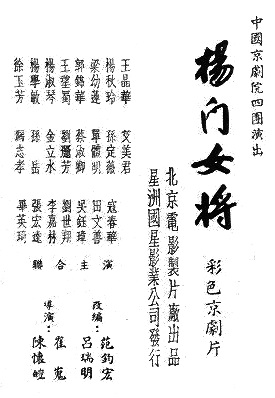 中國京劇院四團演出
楊门女将
彩色京劇片
北京電影製片廠出品
星洲國星影業公司發行
王晶華 艾美君 寇春華
楊秋玲 孫定薇
梁幼蓮 畢體明 田文善
郭錦華 蔡淑卿 吳鈺璋
王望蜀 劉芳 劉世翔
楊淑琴 金立水 李嘉林
楊學敏 孫岳 張宏逵
徐玉芳 馮志孝 畢英琦
聯合主演
改編: 范鈞宏
呂瑞明
導演: 崔嵬
陳懷皚